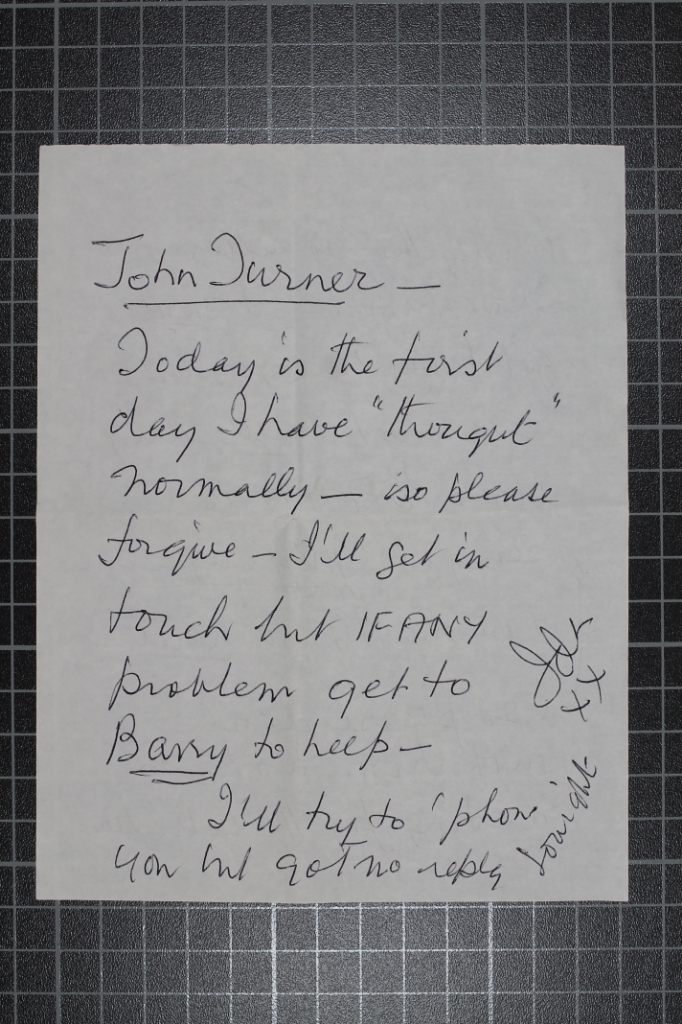 John Turner —
Today is the first
day I have "thought"
normally — so please
forgive — I'll get in
touch but IF ANY
problem get to
Barry to help —
I'll try to 'phone
you but got no reply
tonight
xx